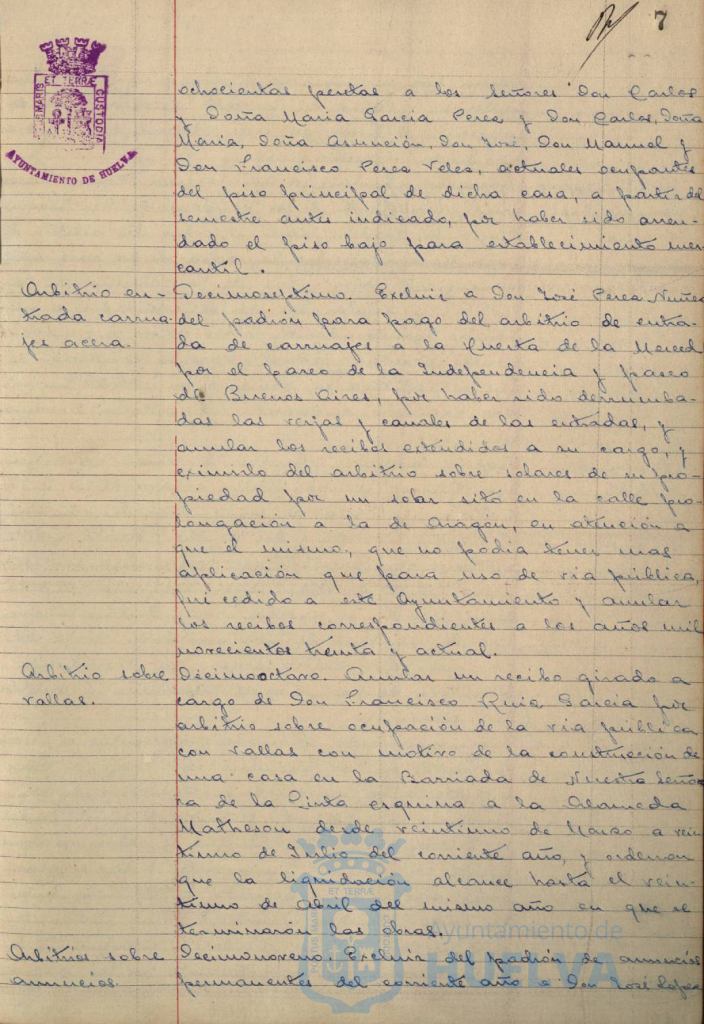 7
PORTUS MARIS ET TERRÆ CUSTODIA
AYUNTAMIENTO DE HUELVA
ochocientas pesetas a los señores Don Carlos
y Doña María García Perea y Don Carlos, Doña
María, Doña Asunción, Don José, Don Manuel y
Don Francisco Perea Velez, actuales ocupantes
del piso principal de dicha casa, a partir del
semestre antes indicado, por haber sido arren-
dado el piso bajo para establecimiento mer-
cantil.
Arbitrio en-
trada carrua-
jes acera.
Decimoseptimo. Excluir a Don José Perea Nuñez
del padrón para pago del arbitrio de entra-
da de carruajes a la Huerta de la Merced
por el paseo de la Independencia y paseo
de Buenos Aires, por haber sido derrumba-
das las verjas y canales de las entradas, y
anular los recibos extendidos a su cargo, y
eximirlo del arbitrio sobre solares de su pro-
piedad por un solar sito en la calle pro-
longación a la de Aragón, en atención a
que el mismo, que no podía tener mas
aplicación que para uso de via pública,
fué cedido a este Ayuntamiento y anular
los recibos correspondientes a los años mil
novecientos treinta y actual.
Arbitrio sobre
vallas.
Decimooctavo. Anular un recibo girado a
cargo de Don Francisco Ruiz García por
arbitrio sobre ocupación de la via pública
con vallas con motivo de la construcción de
una casa en la Barriada de Nuestra Seño-
ra de la Cinta esquina a la Alameda
Matheson desde veintiuno de Marzo a vein-
tiuno de Julio del corriente año, y ordenar
que la liquidación alcance hasta el vein-
tiuno de Abril del mismo año en que se
terminarón las obras.
Arbitrios sobre
anuncios.
Decimonoveno. Excluir del padrón de anuncios
permanentes del corriente año a Don José Lopez
PORTUS MARIS ET TERRÆ CUSTODIA
Ayuntamiento de
HUELVA